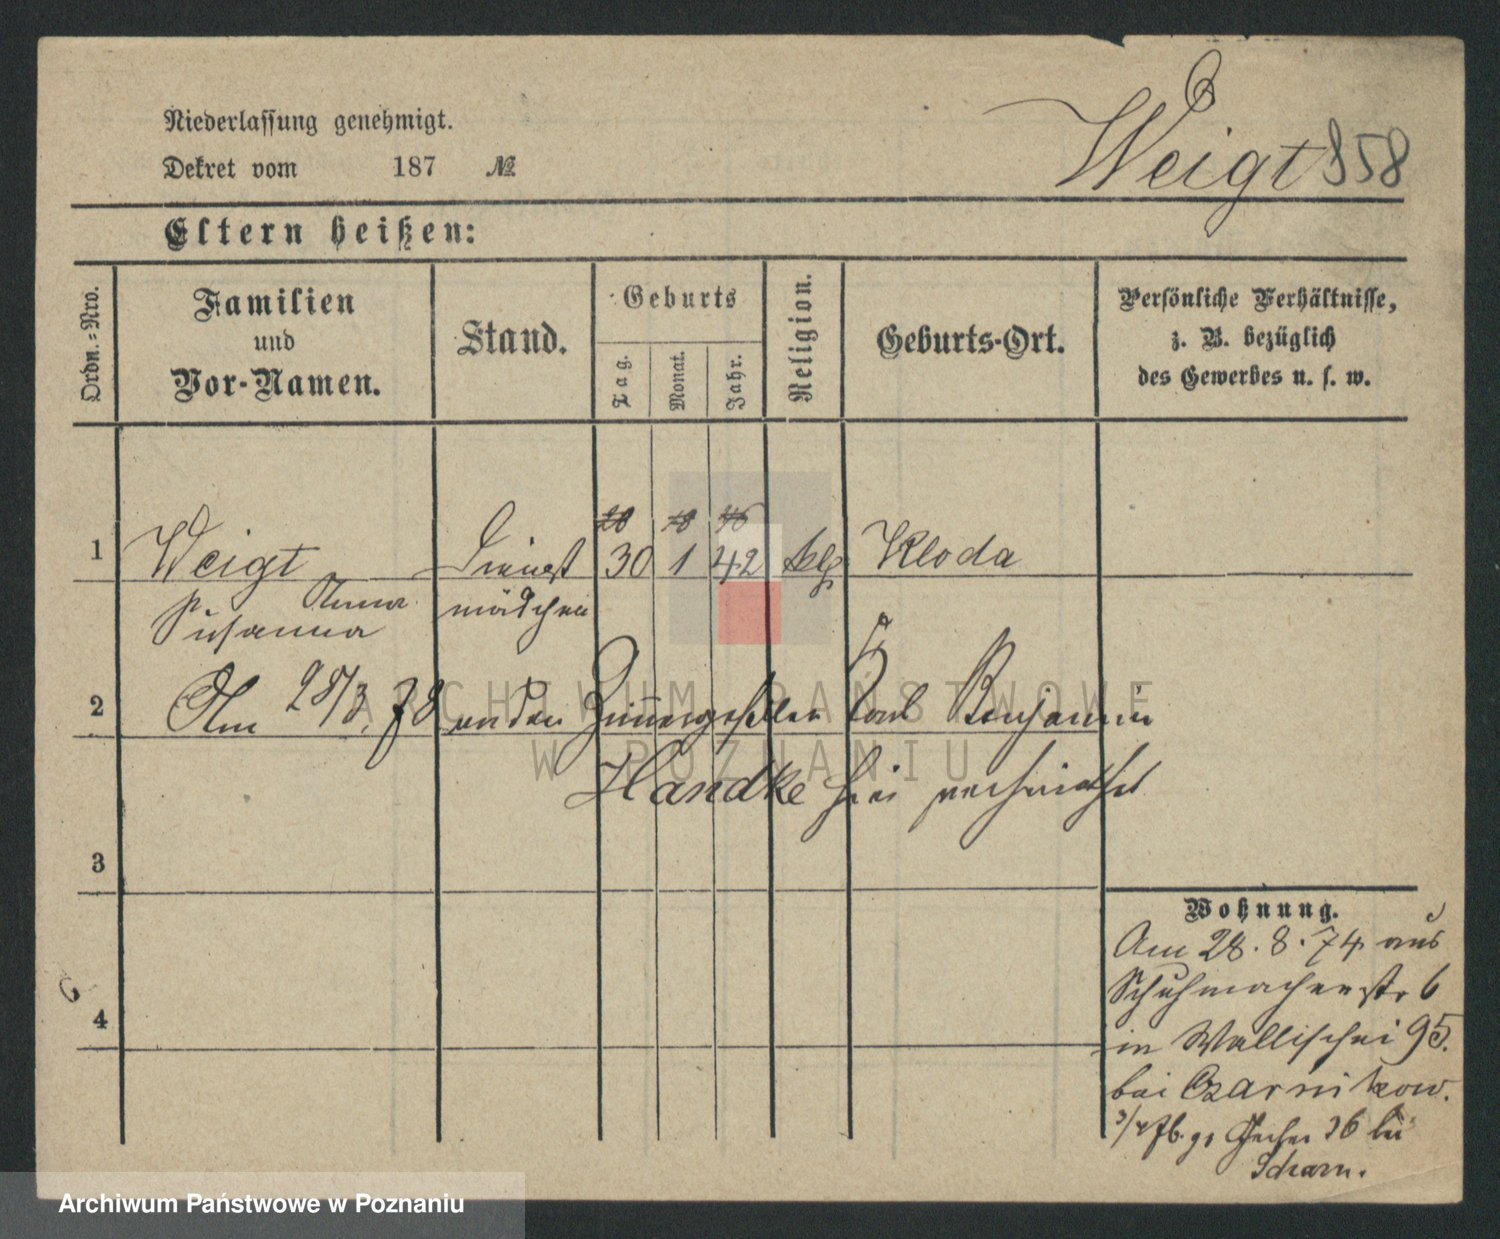 Niederlassung genehmigt.
Dekret vom 187 №
Weigt 858
Eltern heißen:
Ordn.-Nro.
Familien
und
Vor-Namen.
Stand.
Geburts
Tag.
Monat.
Jahr.
Religion.
Geburts-Ort.
Persönliche Verhältnisse,
z. B. bezüglich
des Gewerbes u. s. w.
20 10 46
1 Weigt Dienst 30 1 42 Kloda
Anna mädchen
Susanna
2 Am 28/3. 78 an den Zimmergesellen Carl Benjamin
Handke hier verheirathet
3
4
Wohnung.
Am 28. 8. 74 aus
Schuhmacherstr 6
in Wallischei 95.
bei Czarnikow.
36 bei
Scharn.
ARCHIWUM PAŃSTWOWE
W POZNANIU
Archiwum Państwowe w Poznaniu